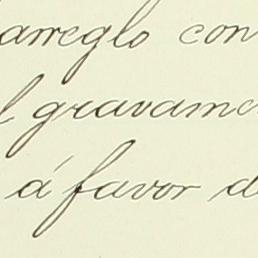 arreglo con
l gravame
á favor d